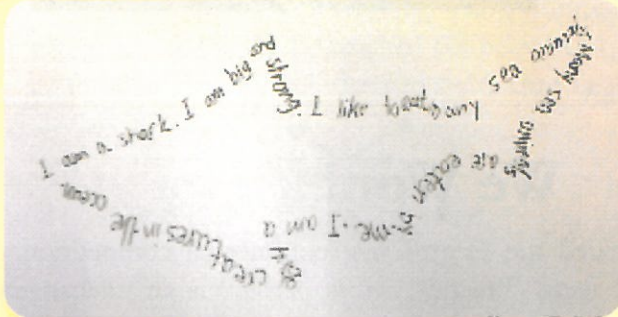 I am a shark. I am big and
strong.
I like to eat many sea
Many sea animals
are eaten by me. I am a
creatures in the ocean.